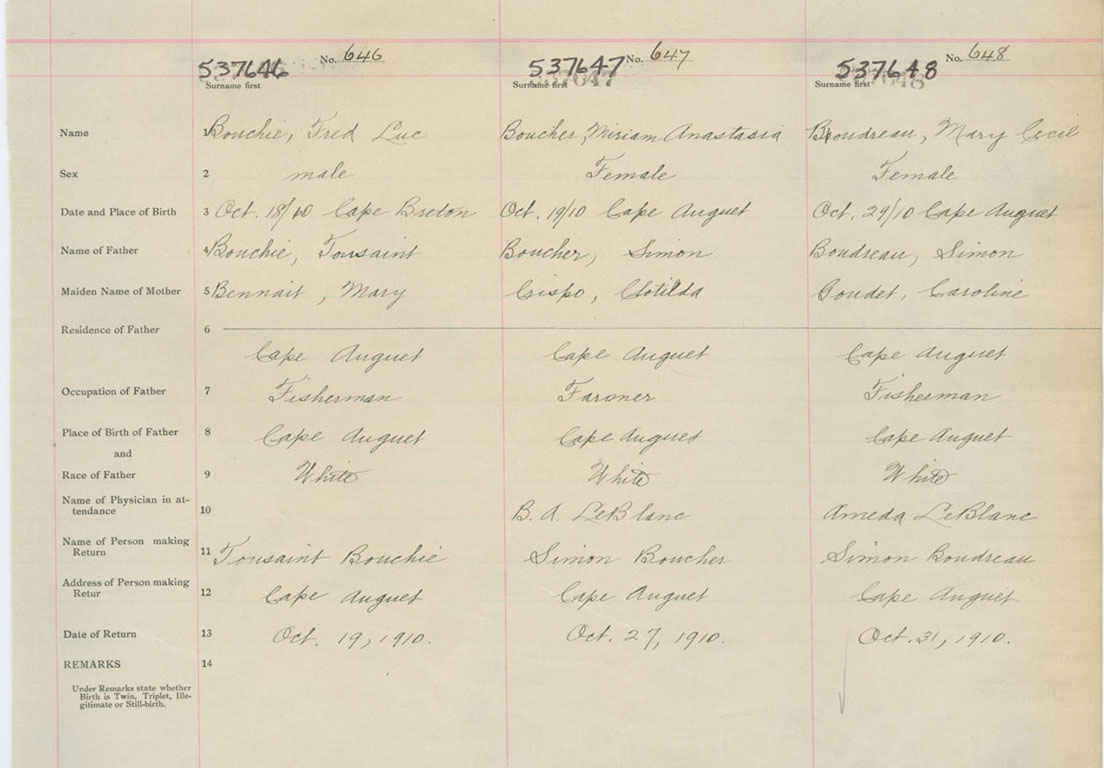 No. 646 No. 647 No. 648
537646 537647 537648
Surname first Surname first Surname first
Name 1 Bouchie, Fred Luc Boucher, Miriam Anastasia Boudreau, Mary Cecil
Sex 2 male Female Female
Date and Place of Birth 3 Oct. 18/10 Cape Breton Oct. 19/10 Cape Auguet Oct. 29/10 Cape Auguet
Name of Father 4 Bouchie, Tousaint Boucher, Simon Boudreau, Simon
Maiden Name of Mother 5 Bennait, Mary Crispo, Clotilda Boudet, Caroline
Residence of Father 6
Cape Auguet Cape Auguet Cape Auguet
Occupation of Father 7 Fisherman Farmer Fisherman
Place of Birth of Father 8 Cape Auguet Cape Auguet Cape Auguet
and
Race of Father 9 White White White
Name of Physician in at-
tendance 10 B. A. LeBlanc Ameda LeBlanc
Name of Person making
Return 11 Tousaint Bouchie Simon Boucher Simon Boudreau
Address of Person making
Retur 12 Cape Auguet Cape Auguet Cape Auguet
Date of Return 13 Oct. 19, 1910. Oct. 27, 1910. Oct. 31, 1910.
REMARKS 14
Under Remarks state whether
Birth is Twin, Triplet, Ille-
gitimate or Still-birth.